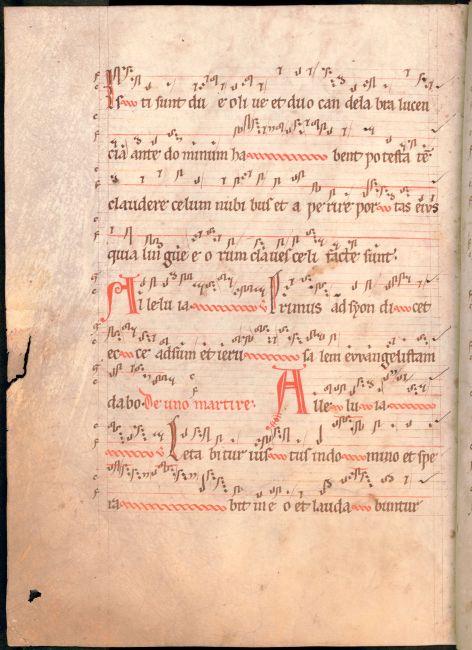 Isti sunt du e oli ve et duo can dela bra lucen
cia ante do minum ha bent po testa tē
claudere celum nubi bus et a pe rire por tas eius
quia lin gue e o rum claves celi facte sunt.
Al lelu ia v Primus ad syon di cet
ec ce adsum et ieru sa lem evvangelistam
dabo De uno martire. Alle lu ia
v Leta bi tur ius tus in do mino et spe
ra bit in e o et lauda buntur